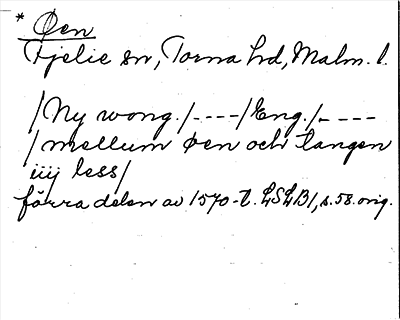 * Øen
Fjelie sn, Torna hd, Malm. l.
/Ny wong./----/Eng./-----
/mellum øen och tangen
iiij less/
förra delen av 1570-t. LSLB1, s. 58. orig.